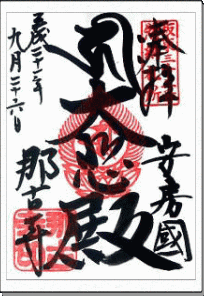 奉拝
安房國
大悲殿
平成二十一年
九月二十六日
那古寺